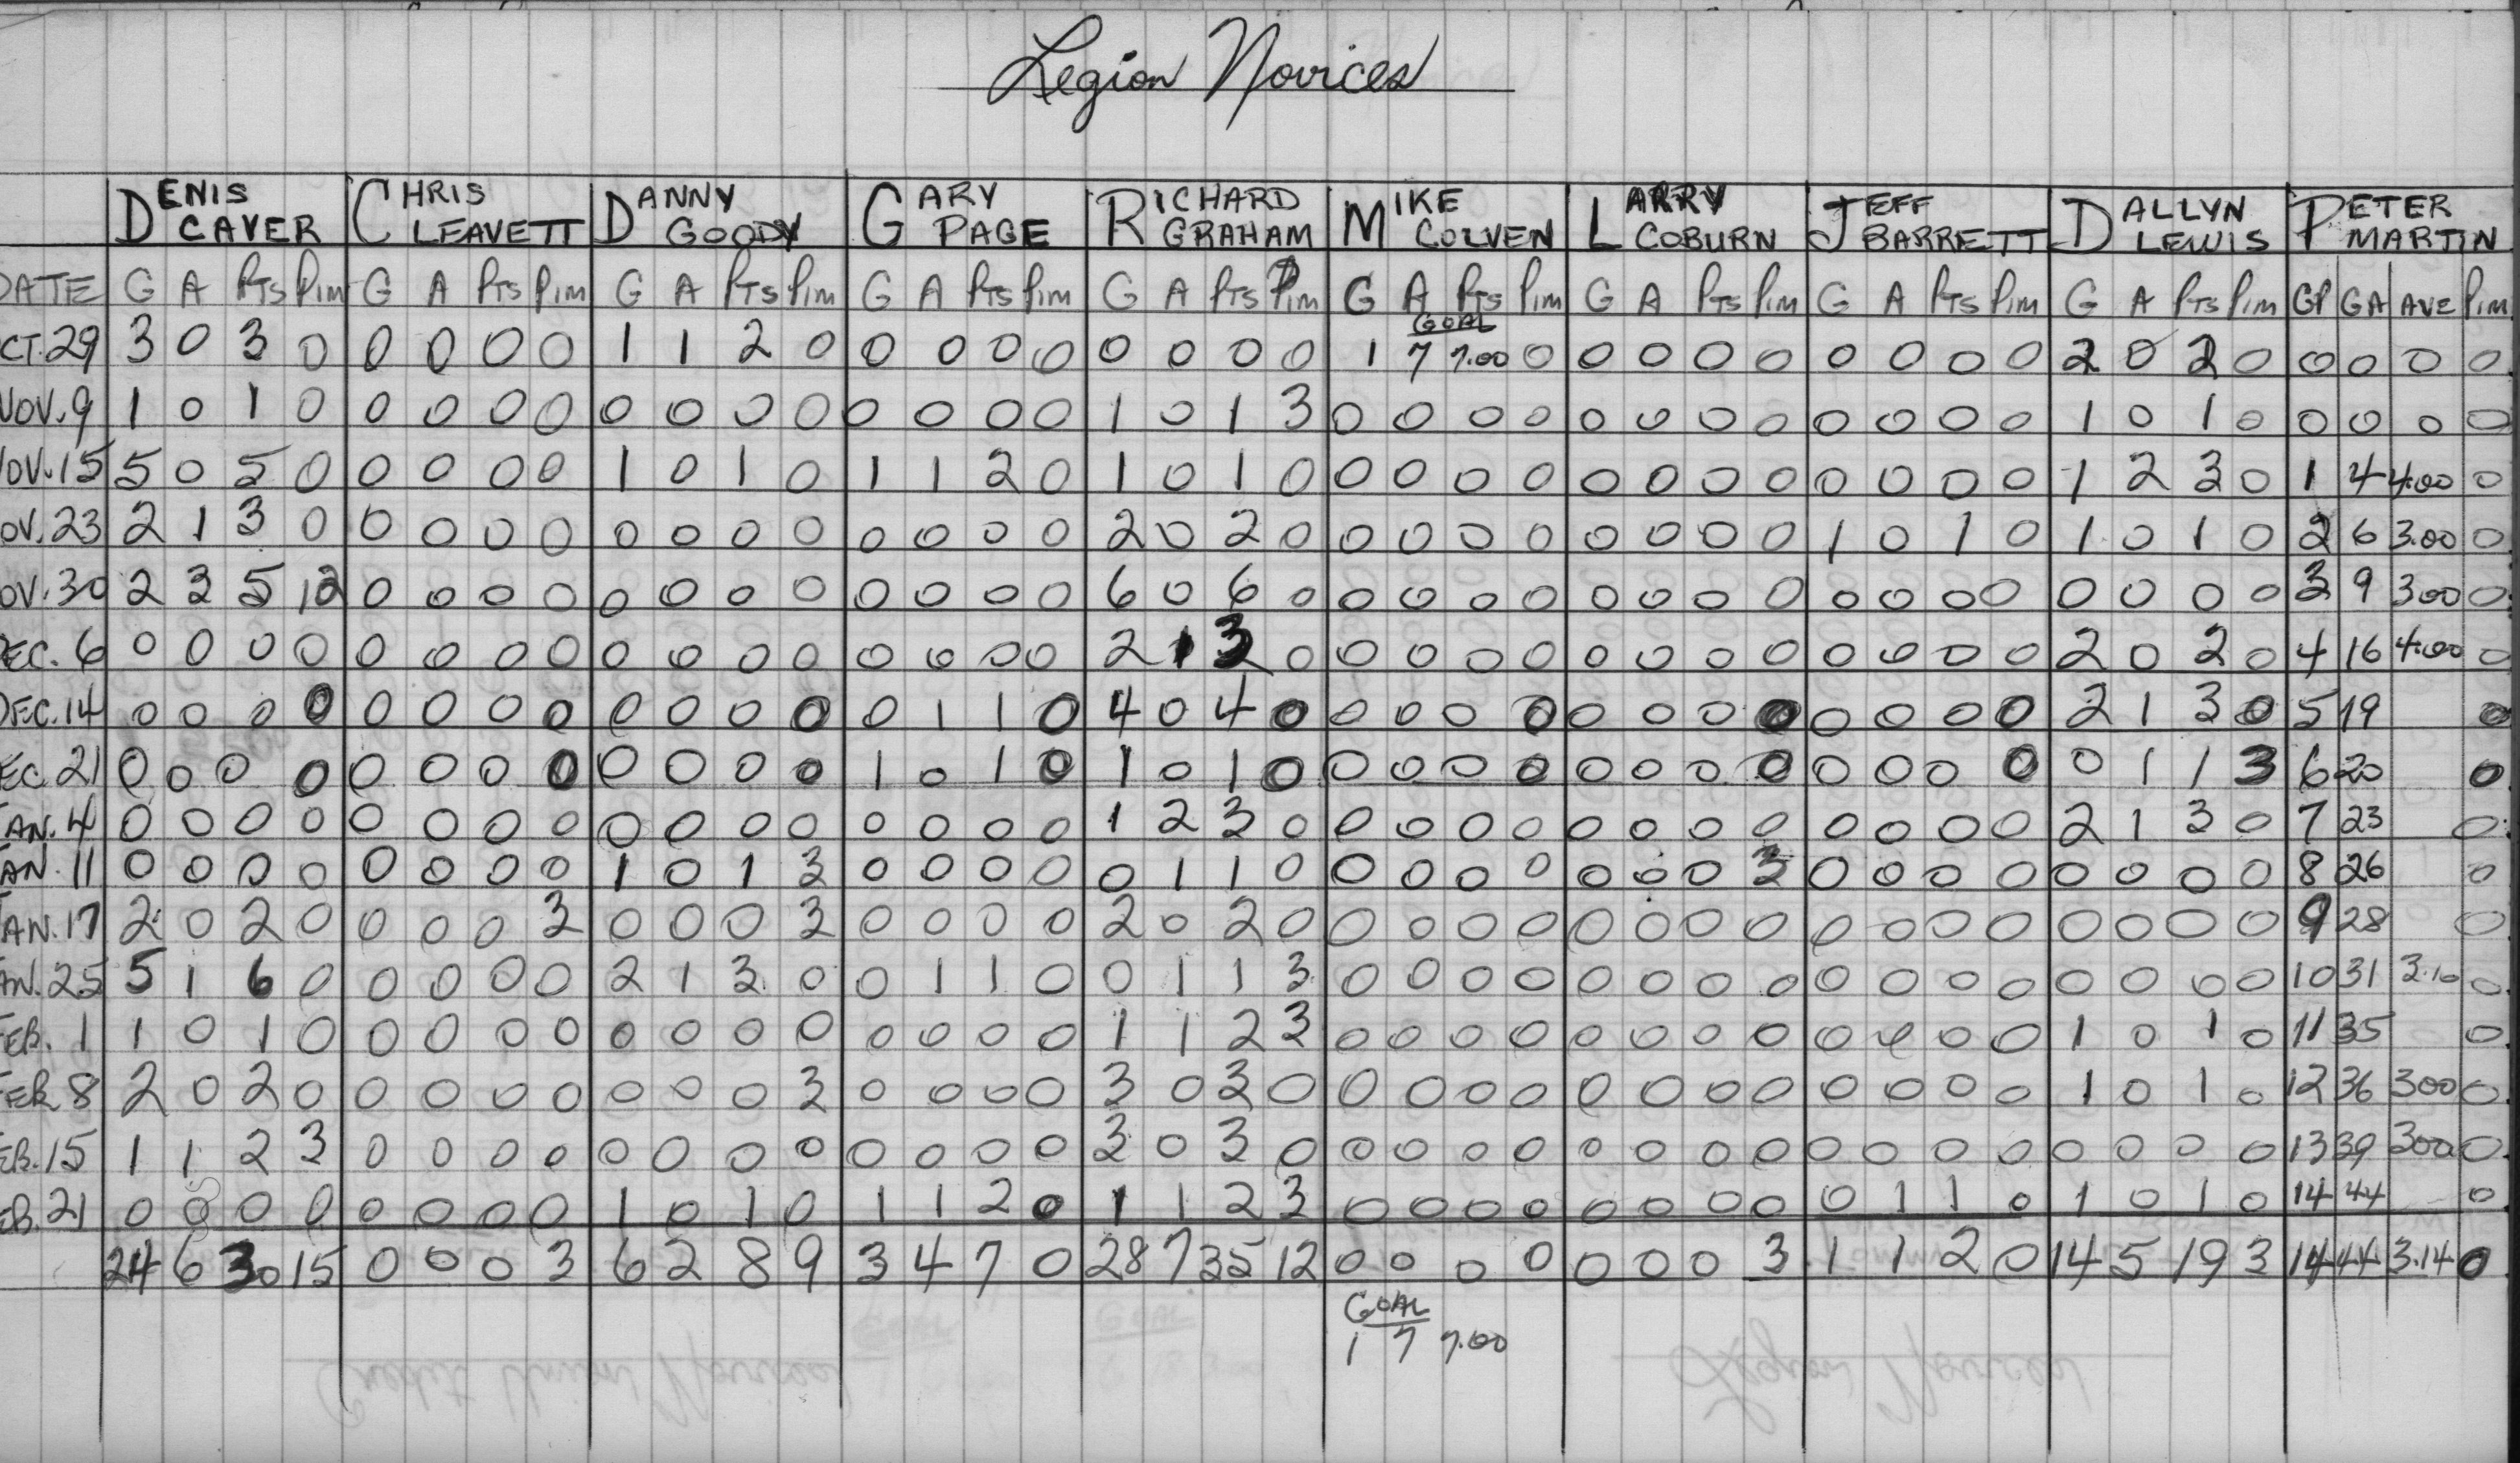 Legion Novices
DENIS CAVER CHRIS CLEAVETT DANNY GOODY GARY PAGE RICHARD GRAHAM MIKE COLVEN LARRY COBURN JEFF BARRETT DALLYN LEWIS PETER MARTIN
DATE G A PTS PIM G A PTS PIM G A PTS PIM G A PTS PIM G A PTS PIM G A PTS PIM G A PTS PIM G A PTS PIM G A PTS PIM GP GA AVE PIM
GOAL
CT.29 3 0 3 0 0 0 0 0 1 1 2 0 0 0 0 0 0 0 0 0 1 7 7.00 0 0 0 0 0 0 0 0 0 2 0 2 0 0 0 0 0
NOV.9 1 0 1 0 0 0 0 0 0 0 0 0 0 0 0 0 1 0 1 3 0 0 0 0 0 0 0 0 0 0 0 0 1 0 1 0 0 0 0 0
NOV.15 5 0 5 0 0 0 0 0 1 0 1 0 1 1 2 0 1 0 1 0 0 0 0 0 0 0 0 0 0 0 0 0 1 2 3 0 1 4 4.00 0
OV.23 2 1 3 0 0 0 0 0 0 0 0 0 0 0 0 0 2 0 2 0 0 0 0 0 0 0 0 0 1 0 1 0 1 0 1 0 2 6 3.00 0
OV.30 2 3 5 12 0 0 0 0 0 0 0 0 0 0 0 0 6 0 6 0 0 0 0 0 0 0 0 0 0 0 0 0 0 0 0 0 3 9 300 0
EC. 6 0 0 0 0 0 0 0 0 0 0 0 0 0 0 0 0 2 1 3 0 0 0 0 0 0 0 0 0 0 0 0 0 2 0 2 0 4 16 4.00 0
DEC.14 0 0 0 0 0 0 0 0 0 0 0 0 0 1 1 0 4 0 4 0 0 0 0 0 0 0 0 0 0 0 0 0 2 1 3 0 5 19 0
EC. 21 0 0 0 0 0 0 0 0 0 0 0 0 1 0 1 0 1 0 1 0 0 0 0 0 0 0 0 0 0 0 0 0 0 1 1 3 6 20 0
JAN. 4 0 0 0 0 0 0 0 0 0 0 0 0 0 0 0 0 1 2 3 0 0 0 0 0 0 0 0 0 0 0 0 0 2 1 3 0 7 23 0
AN. 11 0 0 0 0 0 0 0 0 1 0 1 3 0 0 0 0 0 1 1 0 0 0 0 0 0 0 0 3 0 0 0 0 0 0 0 0 8 26 0
JAN.17 2 0 2 0 0 0 0 3 0 0 0 3 0 0 0 0 2 0 2 0 0 0 0 0 0 0 0 0 0 0 0 0 0 0 0 0 9 28 0
AN.25 5 1 6 0 0 0 0 0 2 1 3 0 0 1 1 0 0 1 1 3 0 0 0 0 0 0 0 0 0 0 0 0 0 0 0 0 10 31 3.10 0
FEB. 1 1 0 1 0 0 0 0 0 0 0 0 0 0 0 0 0 1 1 2 3 0 0 0 0 0 0 0 0 0 0 0 0 1 0 1 0 11 35 0
FEB 8 2 0 2 0 0 0 0 0 0 0 0 3 0 0 0 0 3 0 3 0 0 0 0 0 0 0 0 0 0 0 0 0 1 0 1 0 12 36 300 0
EB.15 1 1 2 3 0 0 0 0 0 0 0 0 0 0 0 0 3 0 3 0 0 0 0 0 0 0 0 0 0 0 0 0 0 0 0 0 13 39 300 0
EB.21 0 0 0 0 0 0 0 0 1 0 1 0 1 1 2 0 1 1 2 3 0 0 0 0 0 0 0 0 0 1 1 0 1 0 1 0 14 44 0
24 6 30 15 0 0 0 3 6 2 8 9 3 4 7 0 28 7 35 12 0 0 0 0 0 0 0 3 1 1 2 0 14 5 19 3 14 44 3.14 0
GOAL
1 7 7.00